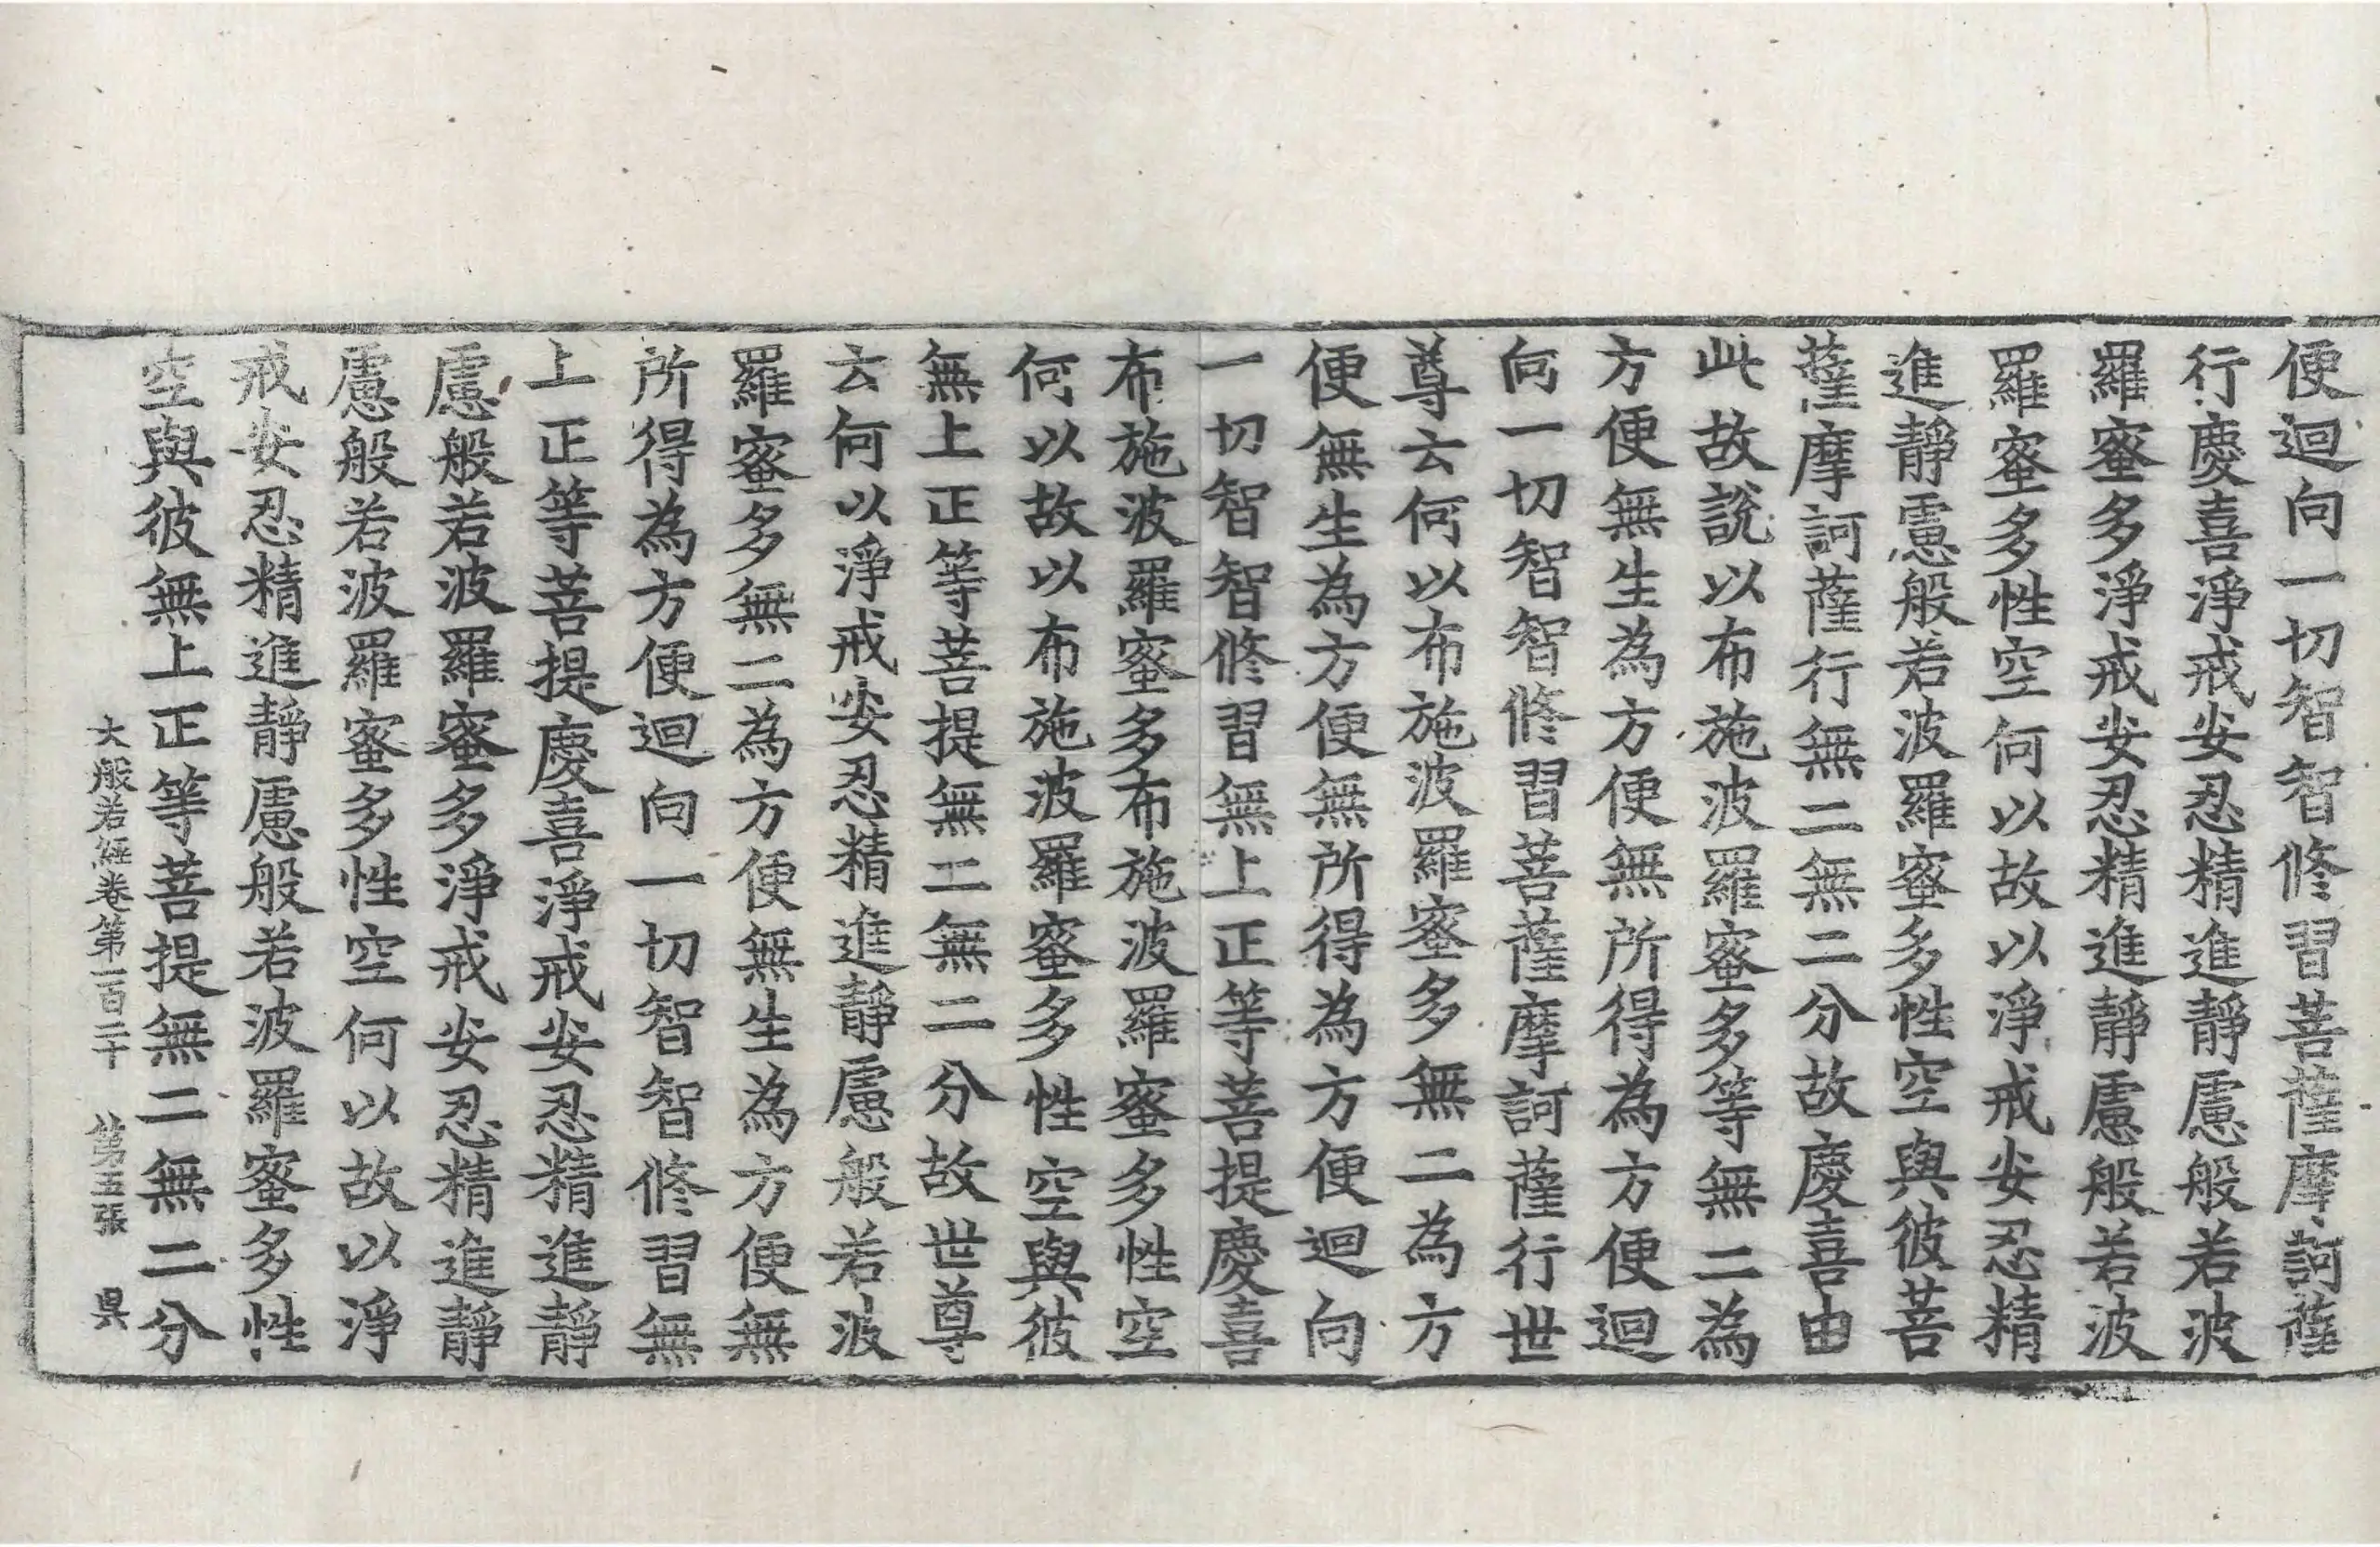 便迴向一切智智修習菩薩摩訶薩
行慶喜淨戒安忍精進靜慮般若波
羅蜜多淨戒安忍精進靜慮般若波
羅蜜多性空何以故以淨戒安忍精
進靜慮般若波羅蜜多性空與彼菩
薩摩訶薩行無二無二分故慶喜由
此故說以布施波羅蜜多等無二為
方便無生為方便無所得為方便迴
向一切智智修習菩薩摩訶薩行世
尊云何以布施波羅蜜多無二為方
便無生為方便無所得為方便迴向
一切智智修習無上正等菩提慶喜
布施波羅蜜多布施波羅蜜多性空
何以故以布施波羅蜜多性空與彼
無上正等菩提無二無二分故世尊
云何以淨戒安忍精進靜慮般若波
羅蜜多無二為方便無生為方便無
所得為方便迴向一切智智修習無
上正等菩提慶喜淨戒安忍精進靜
慮般若波羅蜜多淨戒安忍精進靜
慮般若波羅蜜多性空何以故以淨
戒安忍精進靜慮般若波羅蜜多性
空與彼無上正等菩提無二無二分
大般若經卷第一百二十 第五張 昃